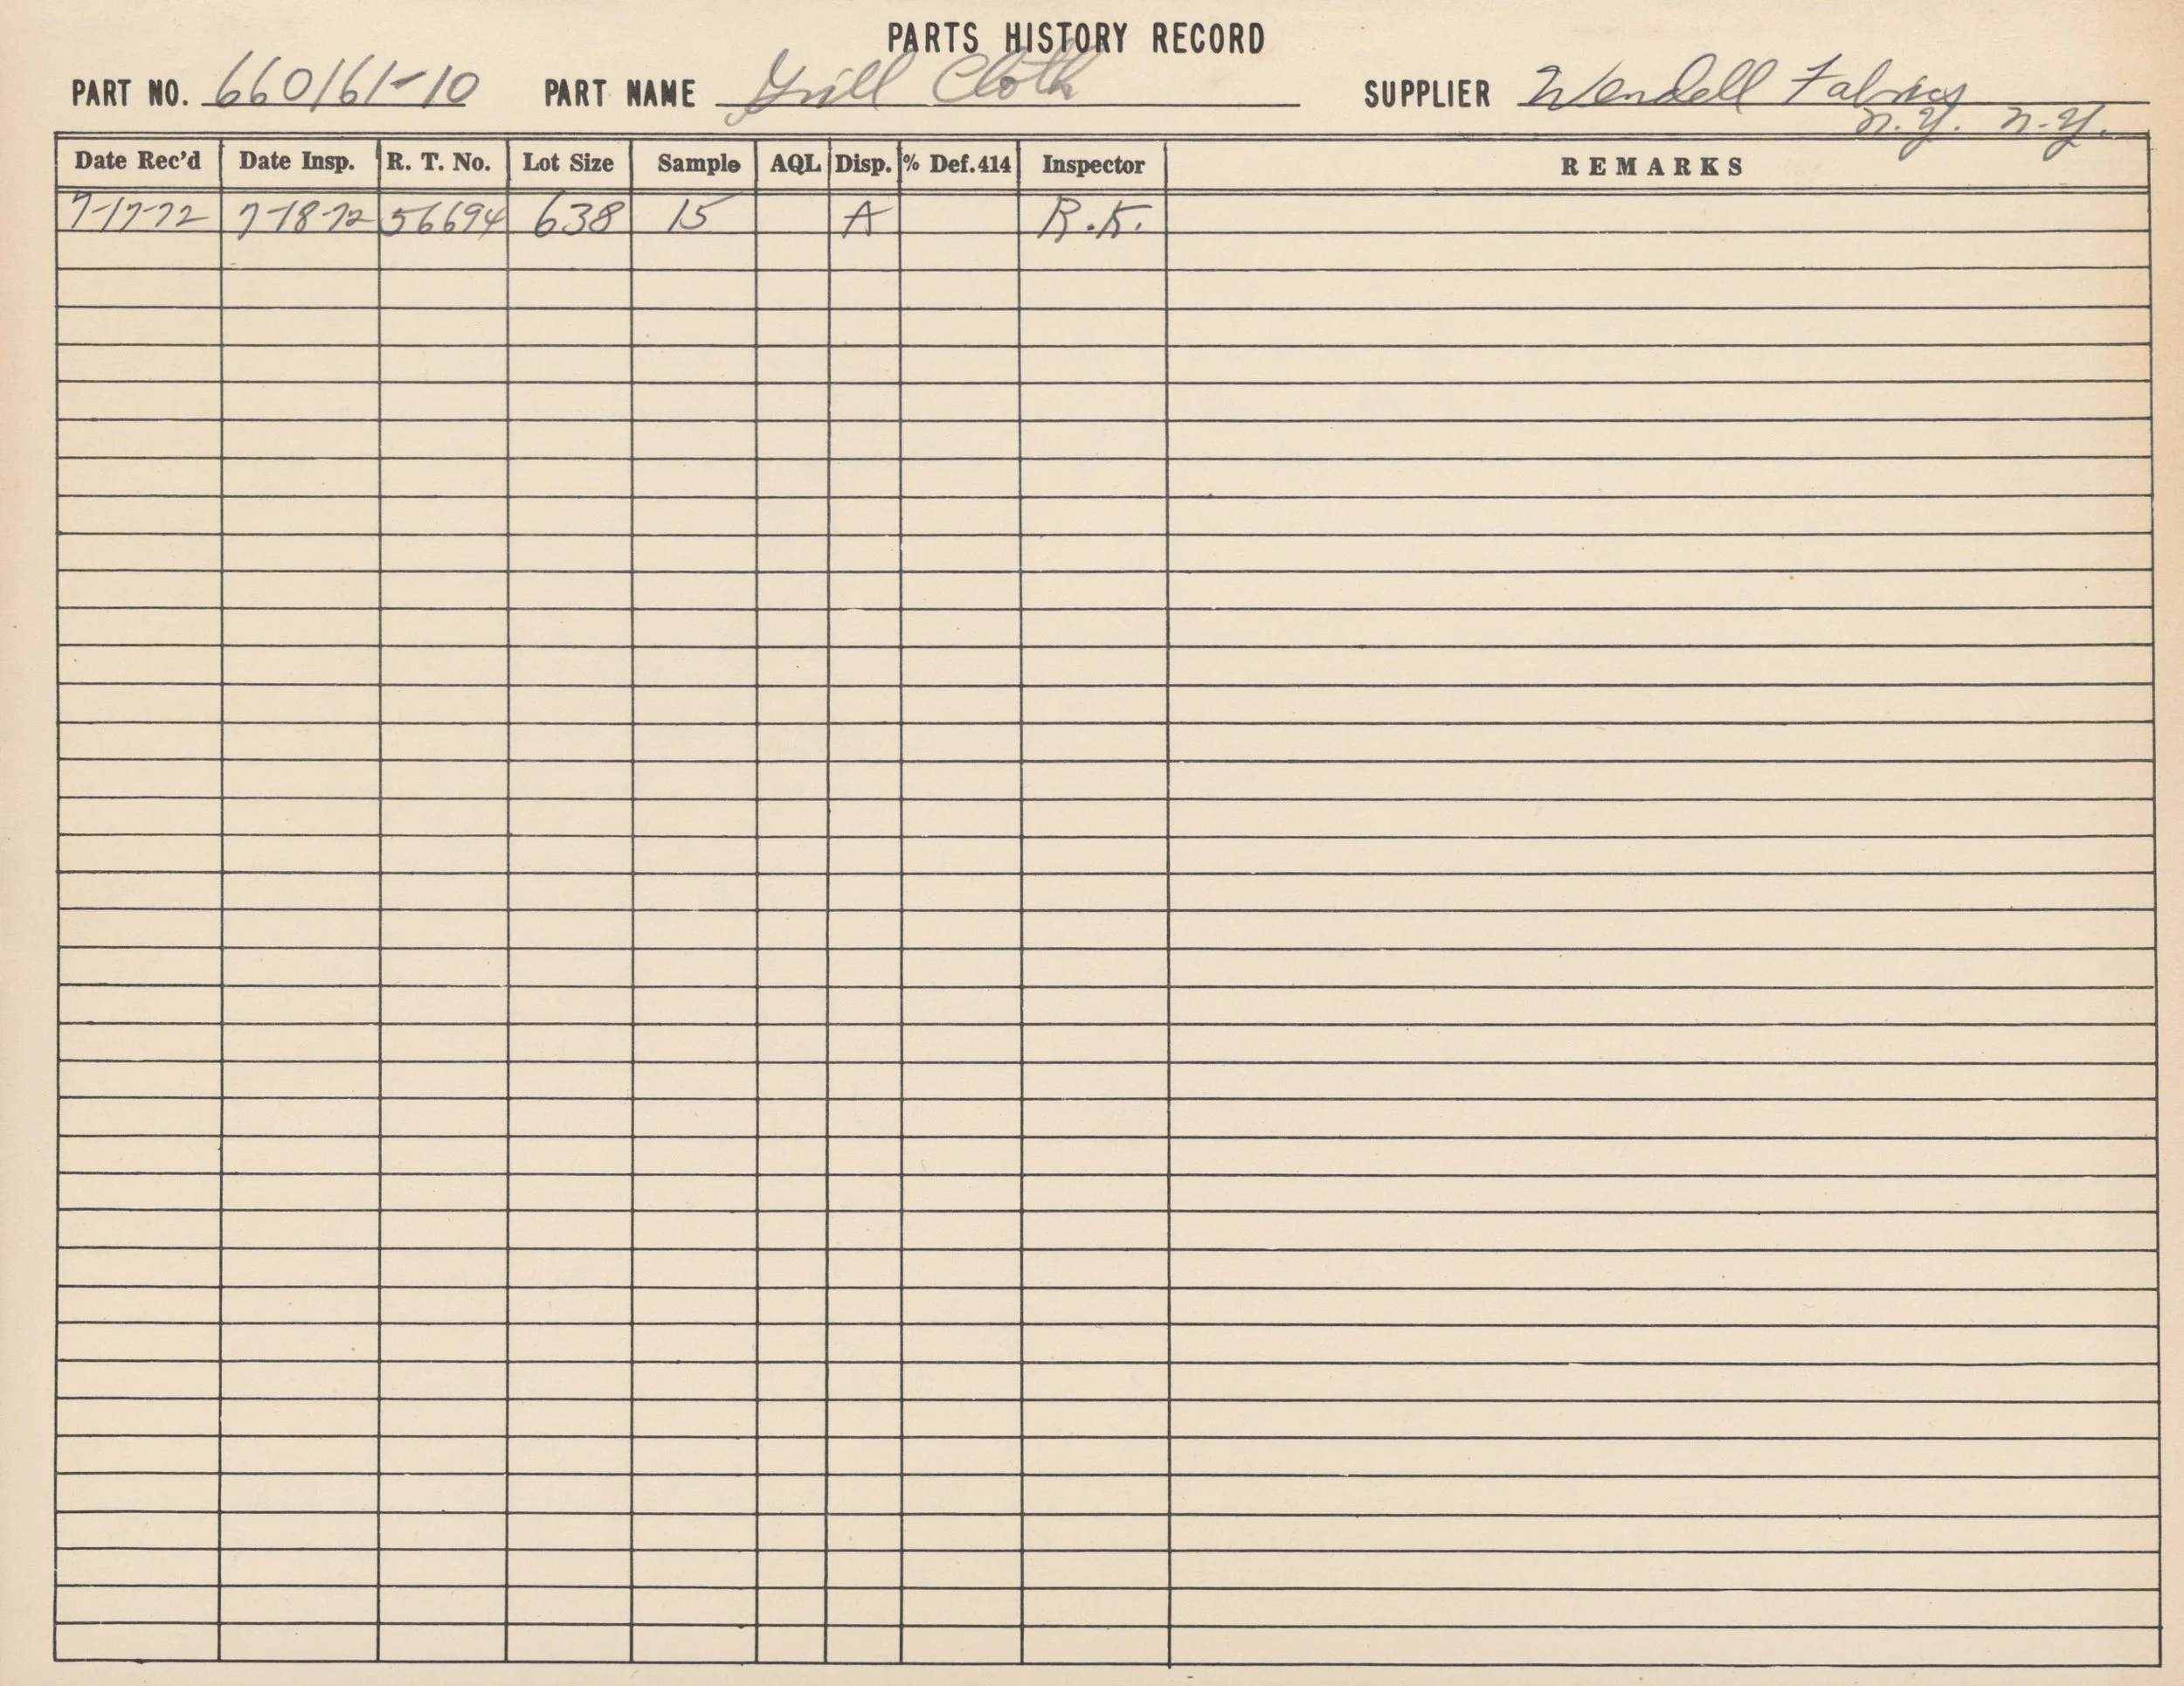 PARTS HISTORY RECORD
PART NO. 660161-10 PART NAME Grill Cloth SUPPLIER Wendell Fabrics
N.Y. N.Y.
Date Rec'd Date Insp. R. T. No. Lot Size Sample AQL Disp. % Def.414 Inspector REMARKS
7-17-72 7-18-72 56694 638 15 A R.K.